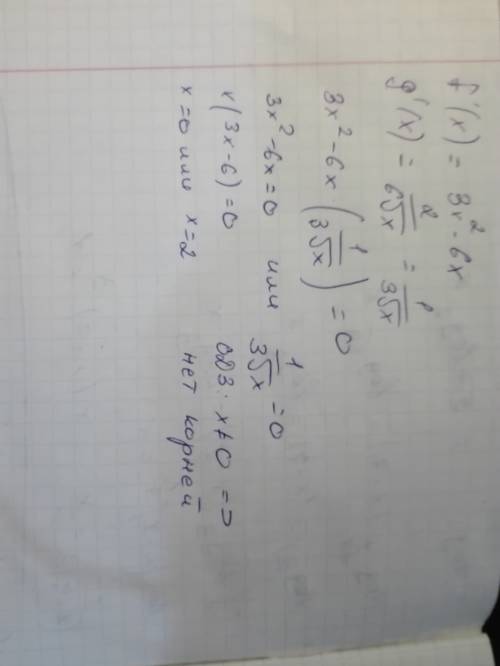 f'(x) = 3x² - 6x
g'(x) = 2/(6√x) = 1/(3√x)
3x² - 6x · (1/(3√x)) = 0
3x² - 6x = 0 или 1/(3√x) = 0
x(3x - 6) = 0 ОДЗ: x ≠ 0 =>
x = 0 или x = 2 нет корней